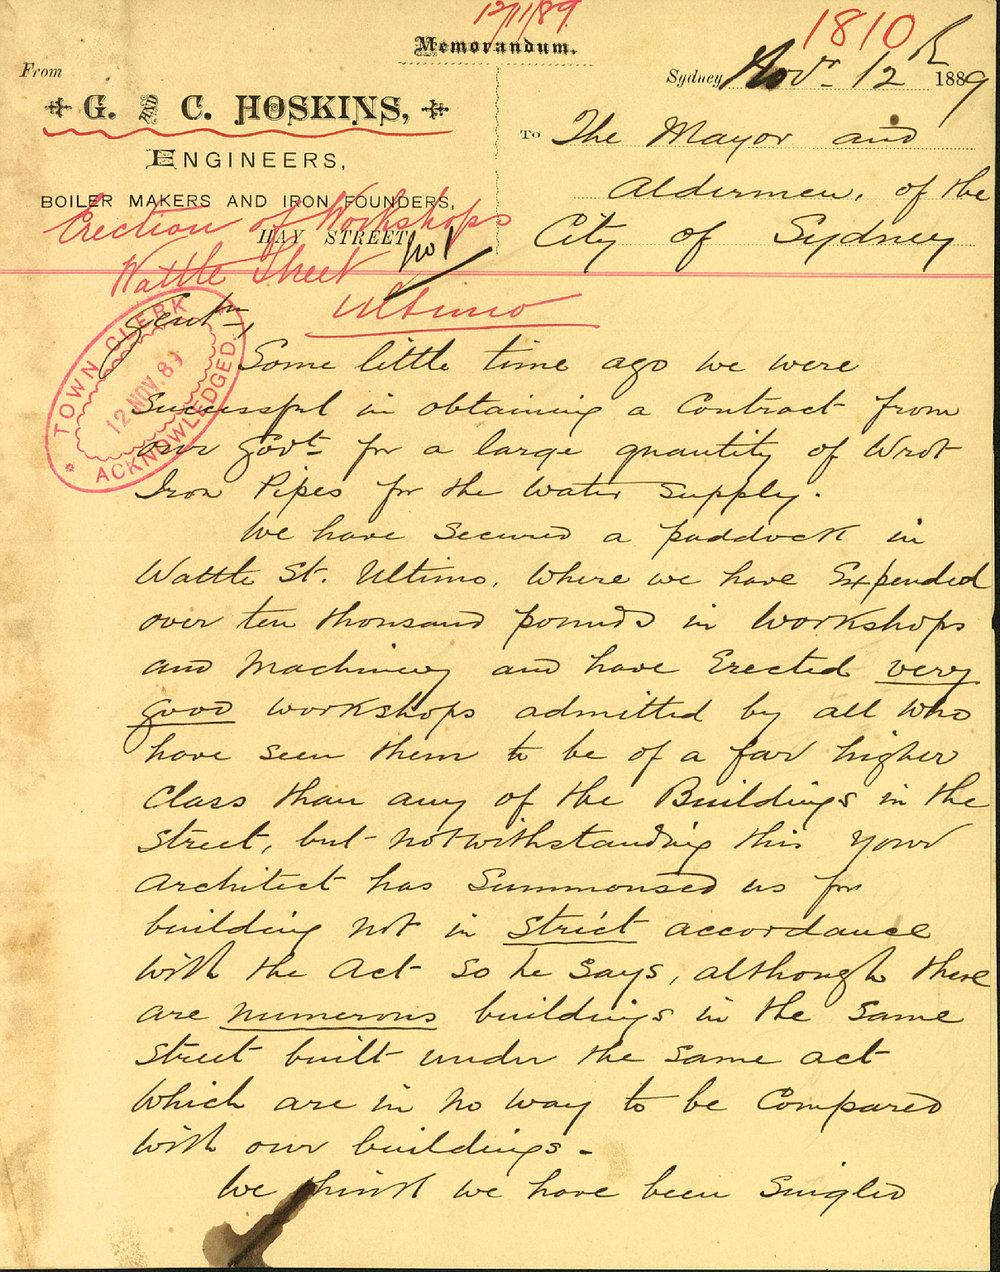 12/11/89
1810
Memorandum.
From
G. AND C. HOSKINS,
ENGINEERS,
BOILER MAKERS AND IRON FOUNDERS,
HAY STREET,
Sydney Novr 12 1889
To The Mayor and
Aldermen, of the
City of Sydney
Erection of Workshops
Wattle Street
Ultimo
No 1
TOWN CLERK
12 NOV. 89
ACKNOWLEDGED.
Gentn,
Some little time ago we were
Successful in obtaining a Contract from
our Govt for a large quantity of Wrot
Iron Pipes for the Water Supply.
We have Secured a paddock in
Wattle St. Ultimo, Where we have Expended
over ten thousand pounds in Workshops
and Machinery and have Erected very
good workshops admitted by all who
have seen them to be of a far higher
Class than any of the Buildings in the
Street, but notwithstanding this your
Architect has Summonsed us for
building not in Strict accordance
with the Act So he Says, although there
are numerous buildings in the Same
Street built under the Same act
Which are in no way to be Compared
with our buildings -
We think we have been Singled